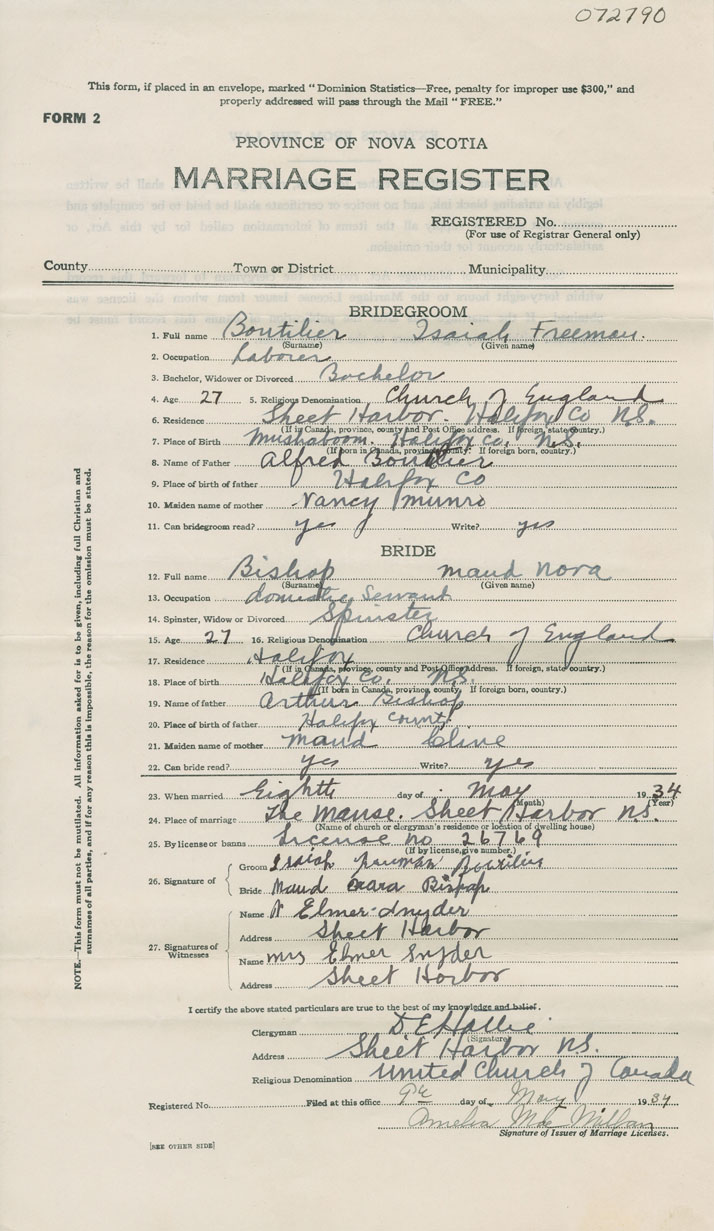 072790
This form, if placed in an envelope, marked "Dominion Statistics—Free, penalty for improper use $300," and
properly addressed will pass through the Mail "FREE."
FORM 2
PROVINCE OF NOVA SCOTIA
MARRIAGE REGISTER
REGISTERED No.
(For use of Registrar General only)
County Town or District Municipality
BRIDEGROOM
1. Full name Boutilier Isaiah Freeman.
(Surname) (Given name)
2. Occupation Laborer
3. Bachelor, Widower or Divorced Bachelor
4. Age 27 5. Religious Denomination Church of England
6. Residence Sheet Harbor. Halifax Co N.S.
(If in Canada, province, county and Post Office address. If foreign, state country.)
7. Place of Birth Mushaboom. Halifax Co. N.S.
(If born in Canada, province, county. If foreign born, country.)
8. Name of Father Alfred Boutilier
9. Place of birth of father Halifax Co
10. Maiden name of mother Nancy Munro
11. Can bridegroom read? yes Write? yes
BRIDE
12. Full name Bishop Maud Nora
(Surname) (Given name)
13. Occupation domestic Servant
14. Spinster, Widow or Divorced Spinster
15. Age 27 16. Religious Denomination Church of England
17. Residence Halifax
(If in Canada, province, county and Post Office address. If foreign, state country.)
18. Place of birth Halifax Co. N.S.
(If born in Canada, province, county. If foreign born, country.)
19. Name of father Arthur Bishop
20. Place of birth of father Halifax County
21. Maiden name of mother Maud Clive
22. Can bride read? yes Write? yes
23. When married Eighth day of May 1934
(Month) (Year)
24. Place of marriage The Manse. Sheet Harbor N.S.
(Name of church or clergyman's residence or location of dwelling house)
25. By license or banns License no 26769
(If by license, give number.)
26. Signature of Groom Isaiah Freeman Boutilier
Bride Maud Bishop
27. Signatures of Witnesses Name Elmer Snyder
Address Sheet Harbor
Name Mrs Elmer Snyder
Address Sheet Harbor
I certify the above stated particulars are true to the best of my knowledge and belief.
Clergyman D E Hallie
(Signature)
Address Sheet Harbor N.S.
Religious Denomination United Church of Canada
Registered No. Filed at this office 9th day of May 1934
Amelia McMillan
Signature of Issuer of Marriage Licenses.
[SEE OTHER SIDE]
NOTE.—This form must not be mutilated. All information asked for is to be given, including full Christian and
surnames of all parties, and if for any reason this is impossible, the reason for the omission must be stated.